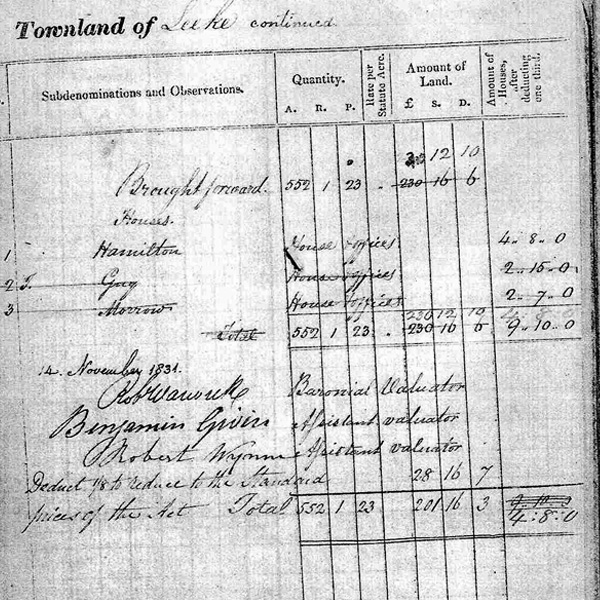 Townland of Leeke continued
Subdenominations and Observations. Quantity. Rate per Statute Acre. Amount of Land. Amount of Houses, after deducting one third.
A. R. P. £ S. D.
12 10
Brought forward. 552 1 23 " 230 16 6
Houses.
1 Hamilton House & offices 4 " 8 " 0
2 J. Guy House & offices 2 " 15 " 0
3 Morrow House & offices 2 " 7 " 0
230 12 10 4 8 0
Total 552 1 23 " 230 16 6 9 " 10 " 0
14 November 1831.
Rob Warwick Baronial Valuator
Benjamin Givin Assistant valuator
Robert Wynne Assistant valuator
Deduct 1/8 to reduce to the Standard 28 16 7
prices of the Act Total 552 1 23 201 16 3 9 10 0
4 : 8 : 0